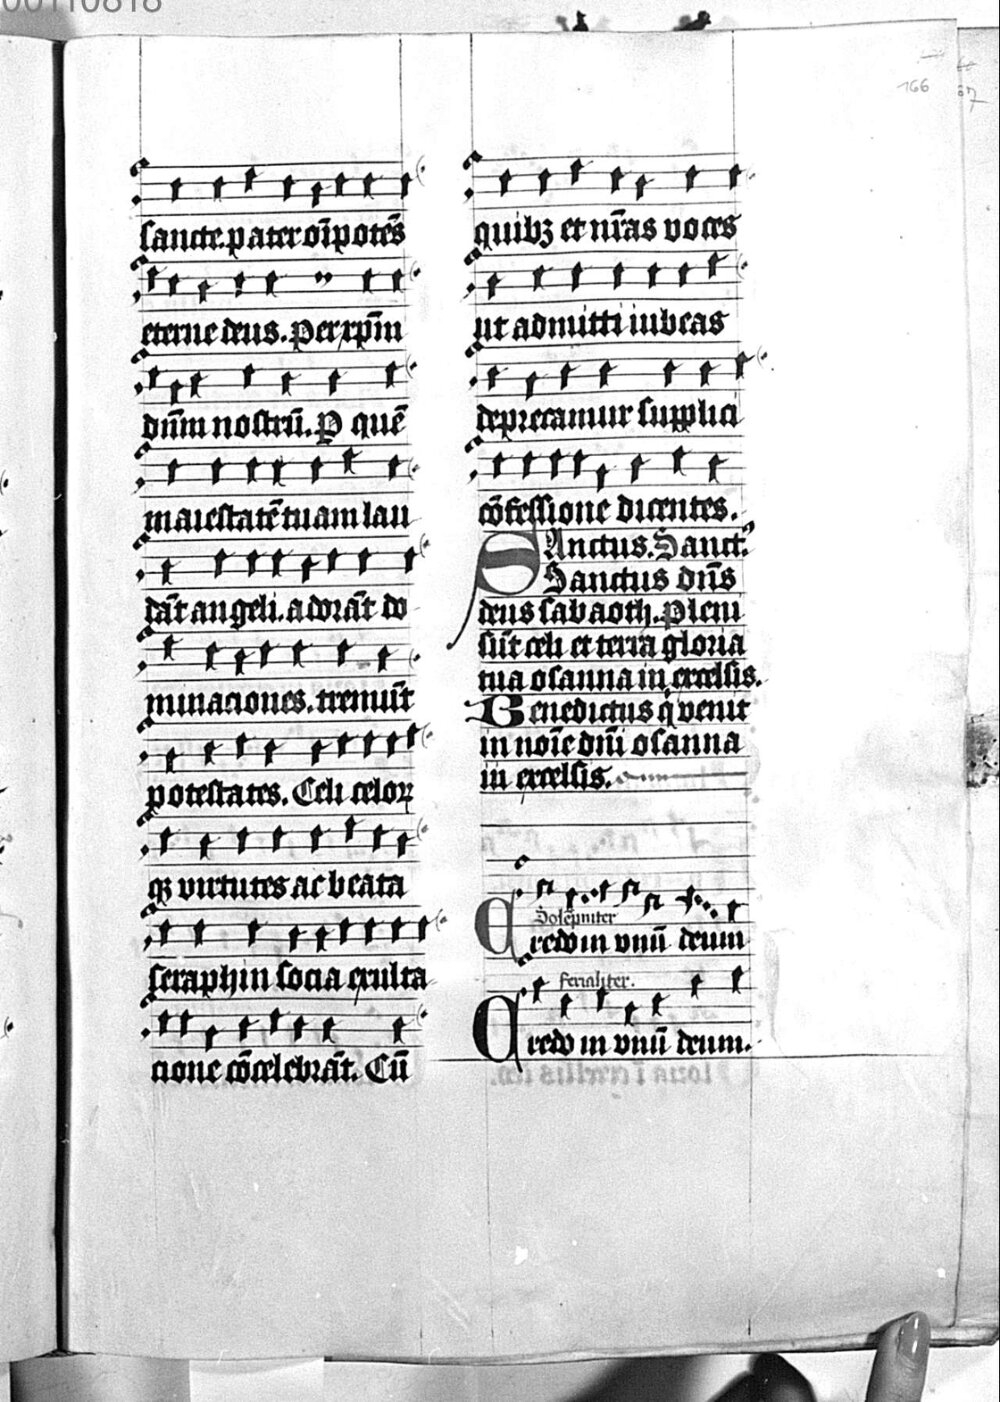 00110818
166
67
sancte pater oı̄potēs
eterne deus. Per xp̄m
dn̄m nostrū. P quē
maiestatē tuam lau
dāt angeli. adorāt do
minaciones. tremūt
potestates. Celi celoꝝ
qꝫ virtutes ac beata
seraphin socia exulta
cione cōcelebrāt. Cū
quibꝫ et nr̄as voces
ut admitti iubeas
deprecamur supplici
cōfessione dicentes.
Sanctus. Sanct᷒
Sanctus dn̄s
deus sabaoth. Pleni
sūt celi et terra gloria
tua osanna in excelsis.
Benedictus q̇ venit
in noı̄e dn̄i osanna
in excelsis.
Solēpniter
Credo in vnū deum
ferialiter.
Credo in vnū deum.